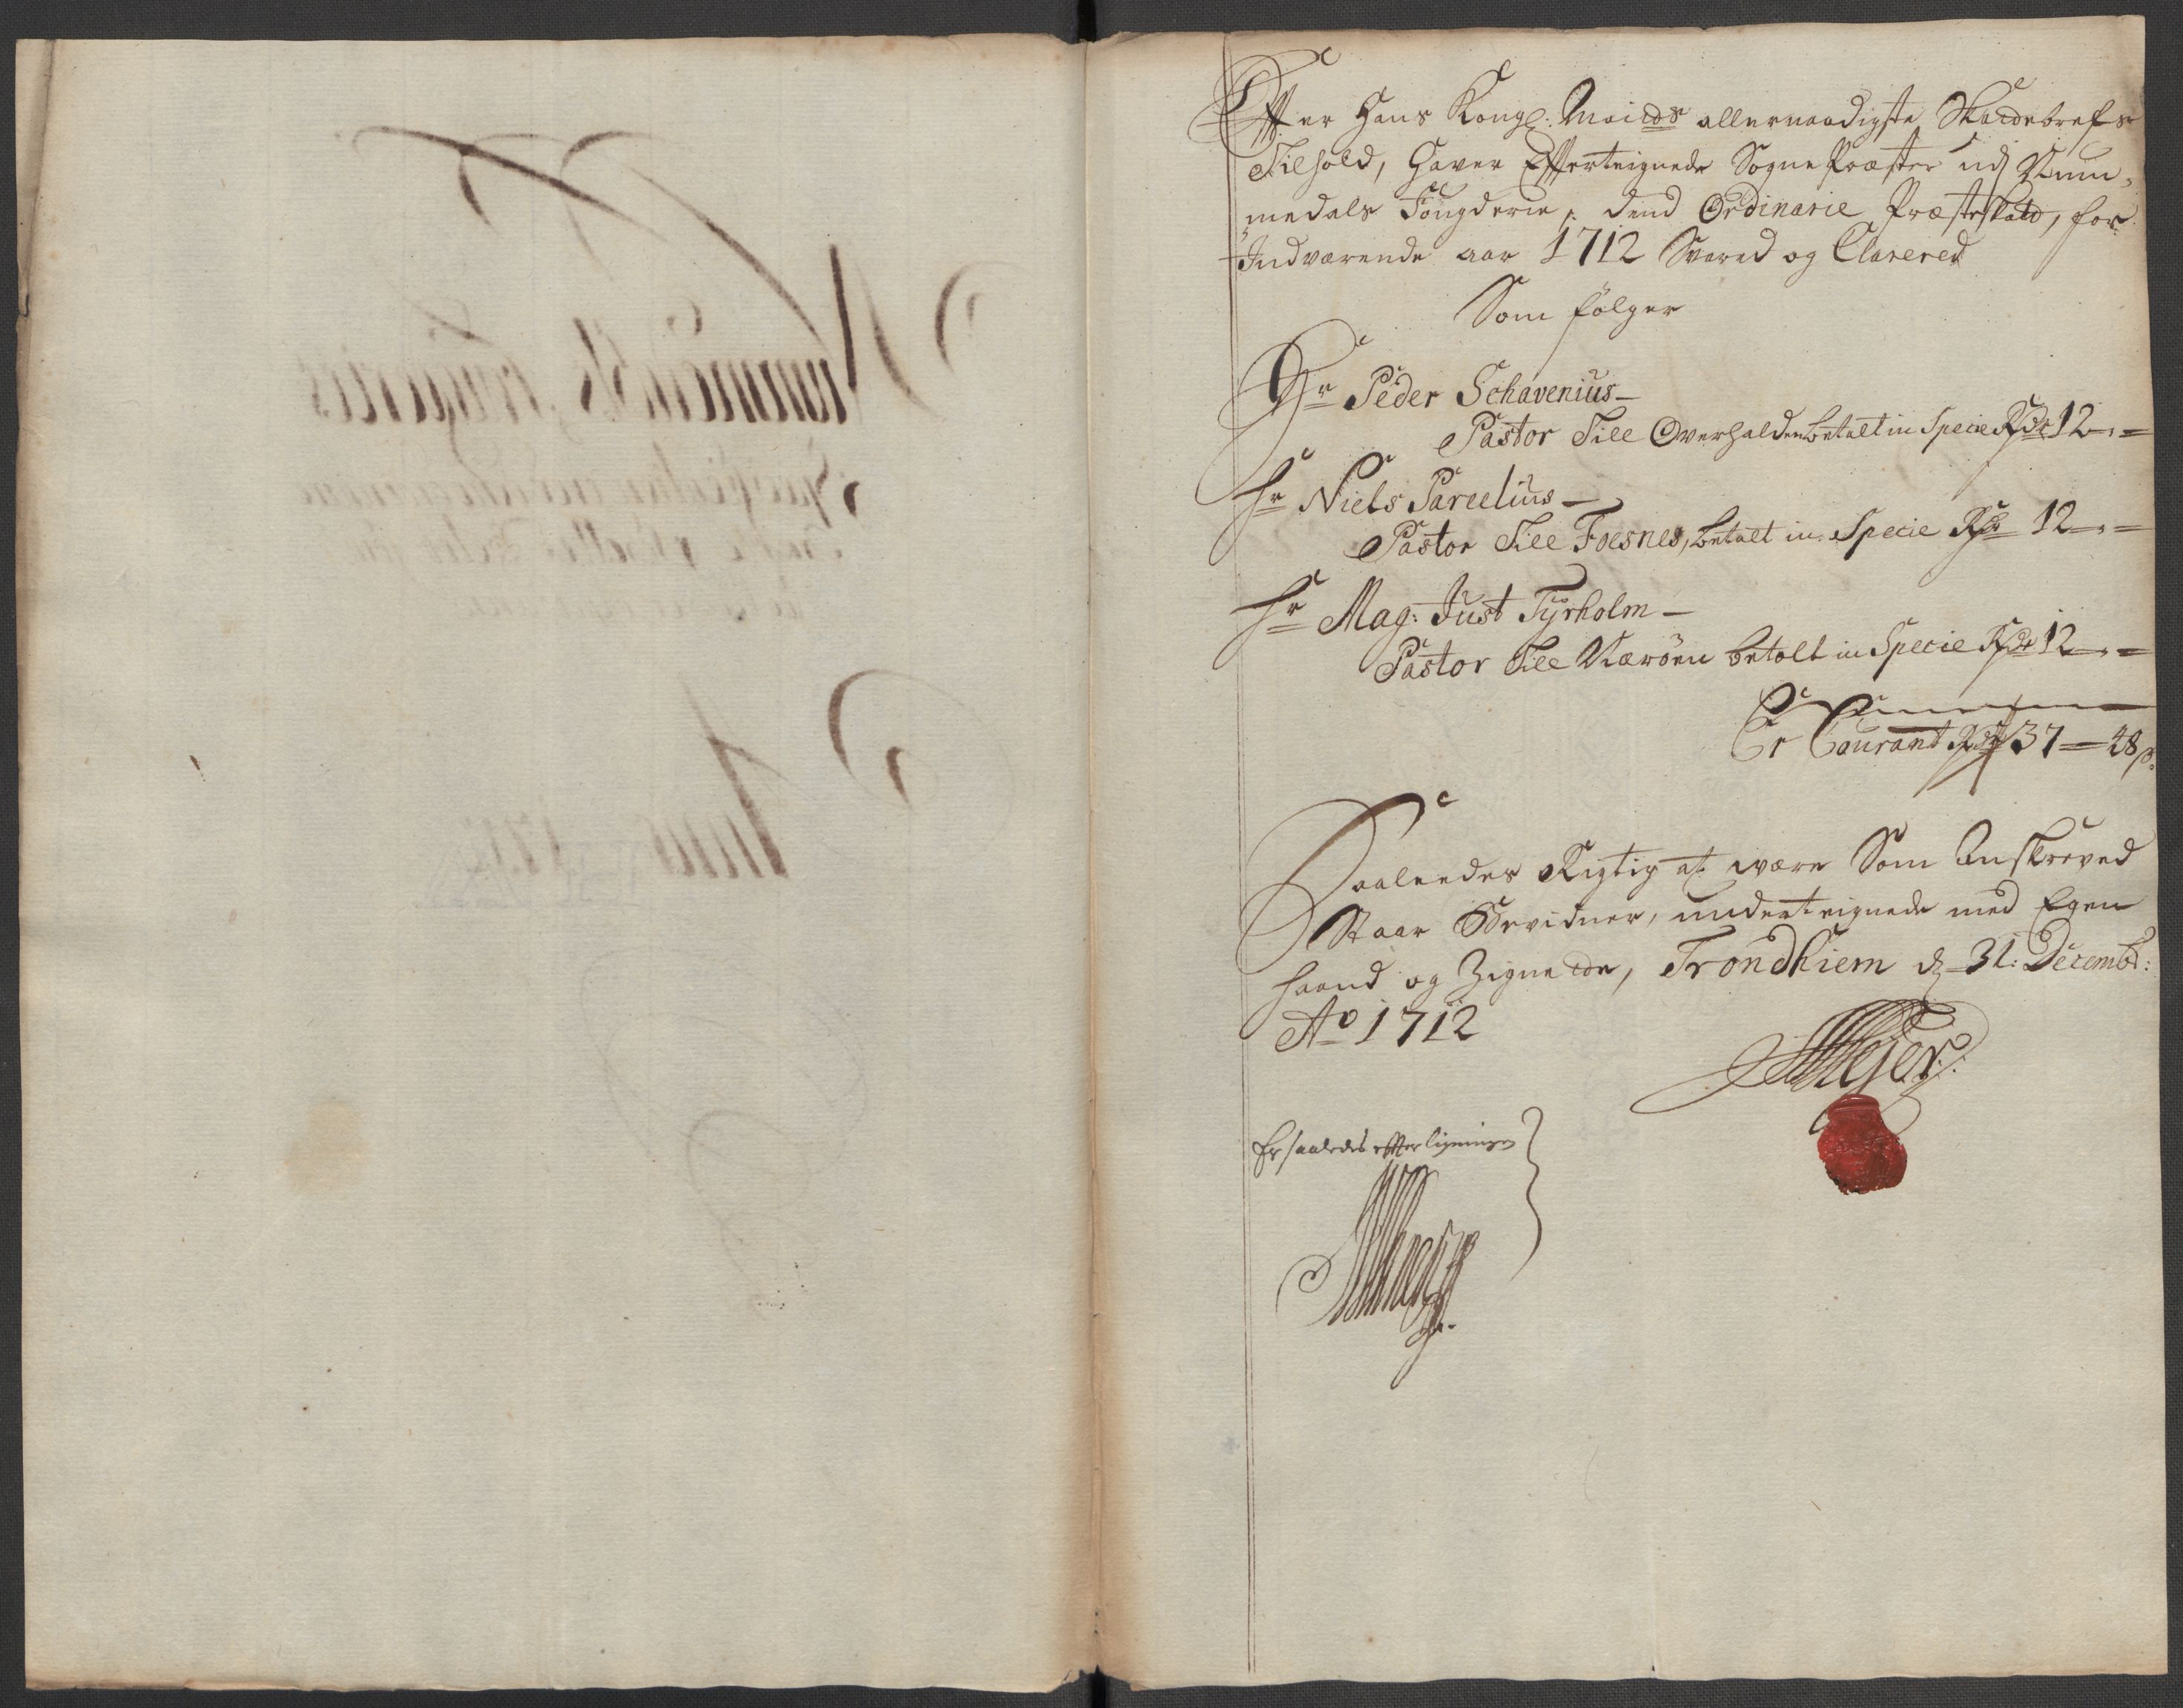 Effter Hans Kongl: Maiids allernaadigste Skattebrefs
Tilhold, Haver Effterteignede Sogne Præster udj Num-
medals Fougderie, dend Ordinarie Præsteskatt, for
Indværende aar 1712 Svared og Clarered
Som følger
Hr Peder Schavenius
Pastor Till Overhalden betalt in Specie Rdr 12 - " -
Hr Niels Parcelius
Pastor Till Foesnes, betalt in Specie Rdr 12 - " -
Hr Mag: Just Tyrholm
Pastor Till Nærøen betalt in Specie Rdr 12 - " -
Er Courant Rdr 37 - 48 ß.
Saaleedes Rigtig at være Som Anskreved
Staar Bevidner, underteignede med Egen
haand og Zignette, Trondhiem d 31: Decembr:
Ao 1712
Er saaledes effter ligningen